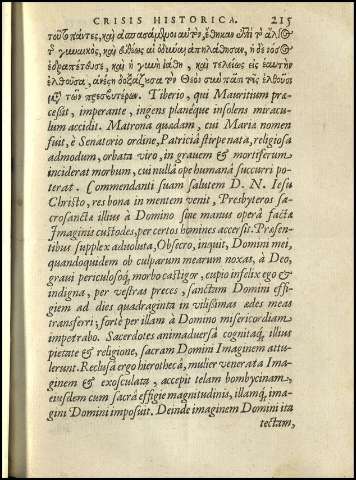 CRISIS HISTORICA. 215
γυμνικὸς, καὶ
ἐδραπέτευσε, καὶ ἡ γυνὴ ἰάθη, καὶ τελείως εἰς ἑαυτὴν
ἐλθοῦσα,
τῶν πρεσβυτέρων. Tiberio, qui Mauritium præ-
cessit, imperante, ingens planéque insolens miracu-
lum accidit. Matrona quædam, cui Maria nomen
fuit, è Senatorio ordine, Patriciâ stirpe nata, religiosa
admodum, orbata viro, in grauem & mortiferum
inciderat morbum, cui nullâ ope humanâ succurri po-
terat. Commendanti suam salutem D. N. Iesu
Christo, res bona in mentem venit, Presbyteros sa-
crosanctæ illius à Domino siue manus operâ factæ
Imaginis custodes, per certos homines accersit. Præsen-
tibus supplex aduoluta, Obsecro, inquit, Domini mei,
quandoquidem ob culparum mearum noxas, à Deo,
graui periculosoq́, morbo castigor, cupio infelix ego &
indigna, per vestras preces, sanctam Domini effi-
giem ad dies quadraginta in vilissimas ædes meas
transferri; forte per illam à Domino misericordiam
impetrabo. Sacerdotes animaduersâ cognitaq́, illius
pietate & religione, sacram Domini Imaginem attu-
lerunt. Reclusâ ergo hierothecâ, mulier venerata Ima-
ginem & exosculata, accepit telam bombycinam,
eiusdem cum sacra effigie magnitudinis, illamq́, ima-
gini Domini imposuit. Deinde imaginem Domini ita
tectam,